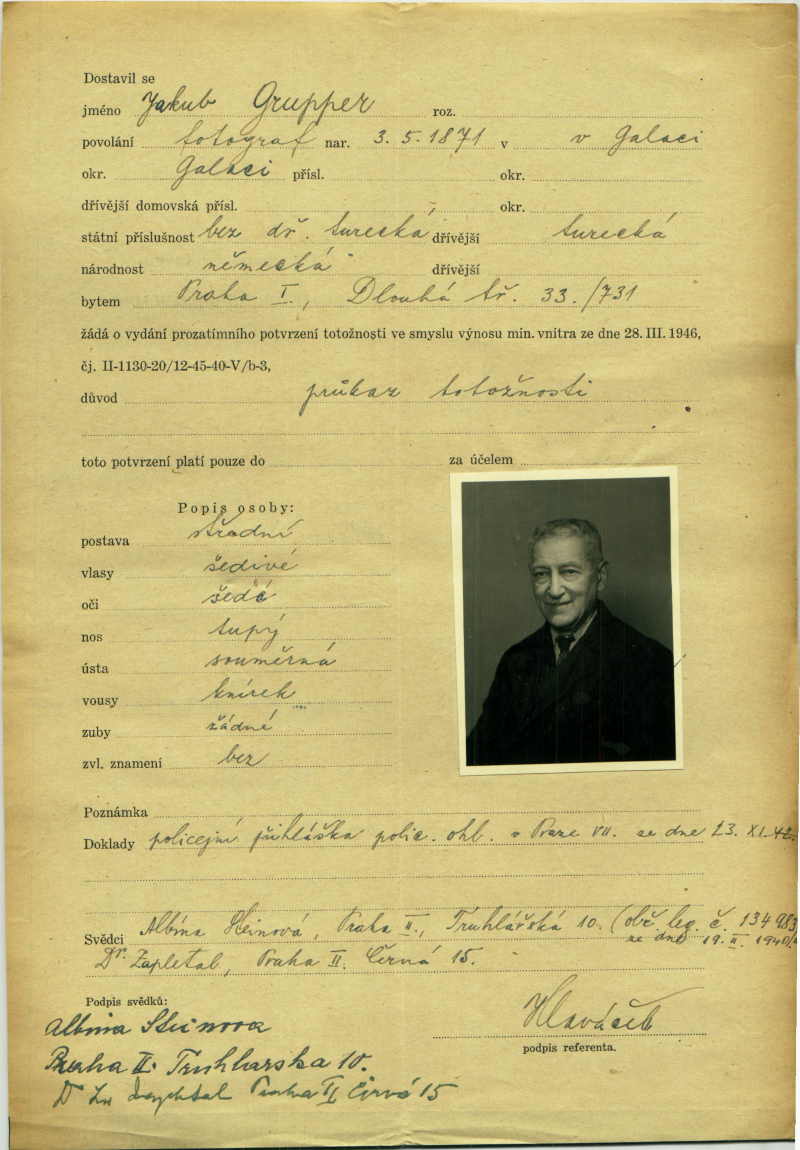 Dostavil se
jméno Jakub Grupper roz.
povolání fotograf nar. 3. 5. 1871 v v Galaci
okr. Galaci přísl. okr.
dřívější domovská přísl. okr.
státní příslušnost bez dř. turecká dřívější turecká
národnost německá dřívější
bytem Praha I., Dlouhá tř. 33./731
žádá o vydání prozatímního potvrzení totožnosti ve smyslu výnosu min. vnitra ze dne 28. III. 1946,
čj. II-1130-20/12-45-40-V/b-3,
důvod průkaz totožnosti
toto potvrzení platí pouze do za účelem
Popis osoby:
postava střadní
vlasy šedivé
oči šedé
nos tupý
ústa souměrná
vousy knírek
zuby žádné
zvl. znamení bez
Poznámka
Doklady policejní přihláška polic. ohl. v Praze VII. ze dne 23. XI. 42.
Svědci Albína Steinová, Praha II., Truhlářská 10. (obč. leg. č. 134983
ze dne 19. II. 1940
Dr. Zapletal, Praha II. Černá 15.
Podpis svědků:
Albina Steinova
Praha II. Truhlarska 10.
Hlaváček
podpis referenta.
Dr Praha II Černá 15